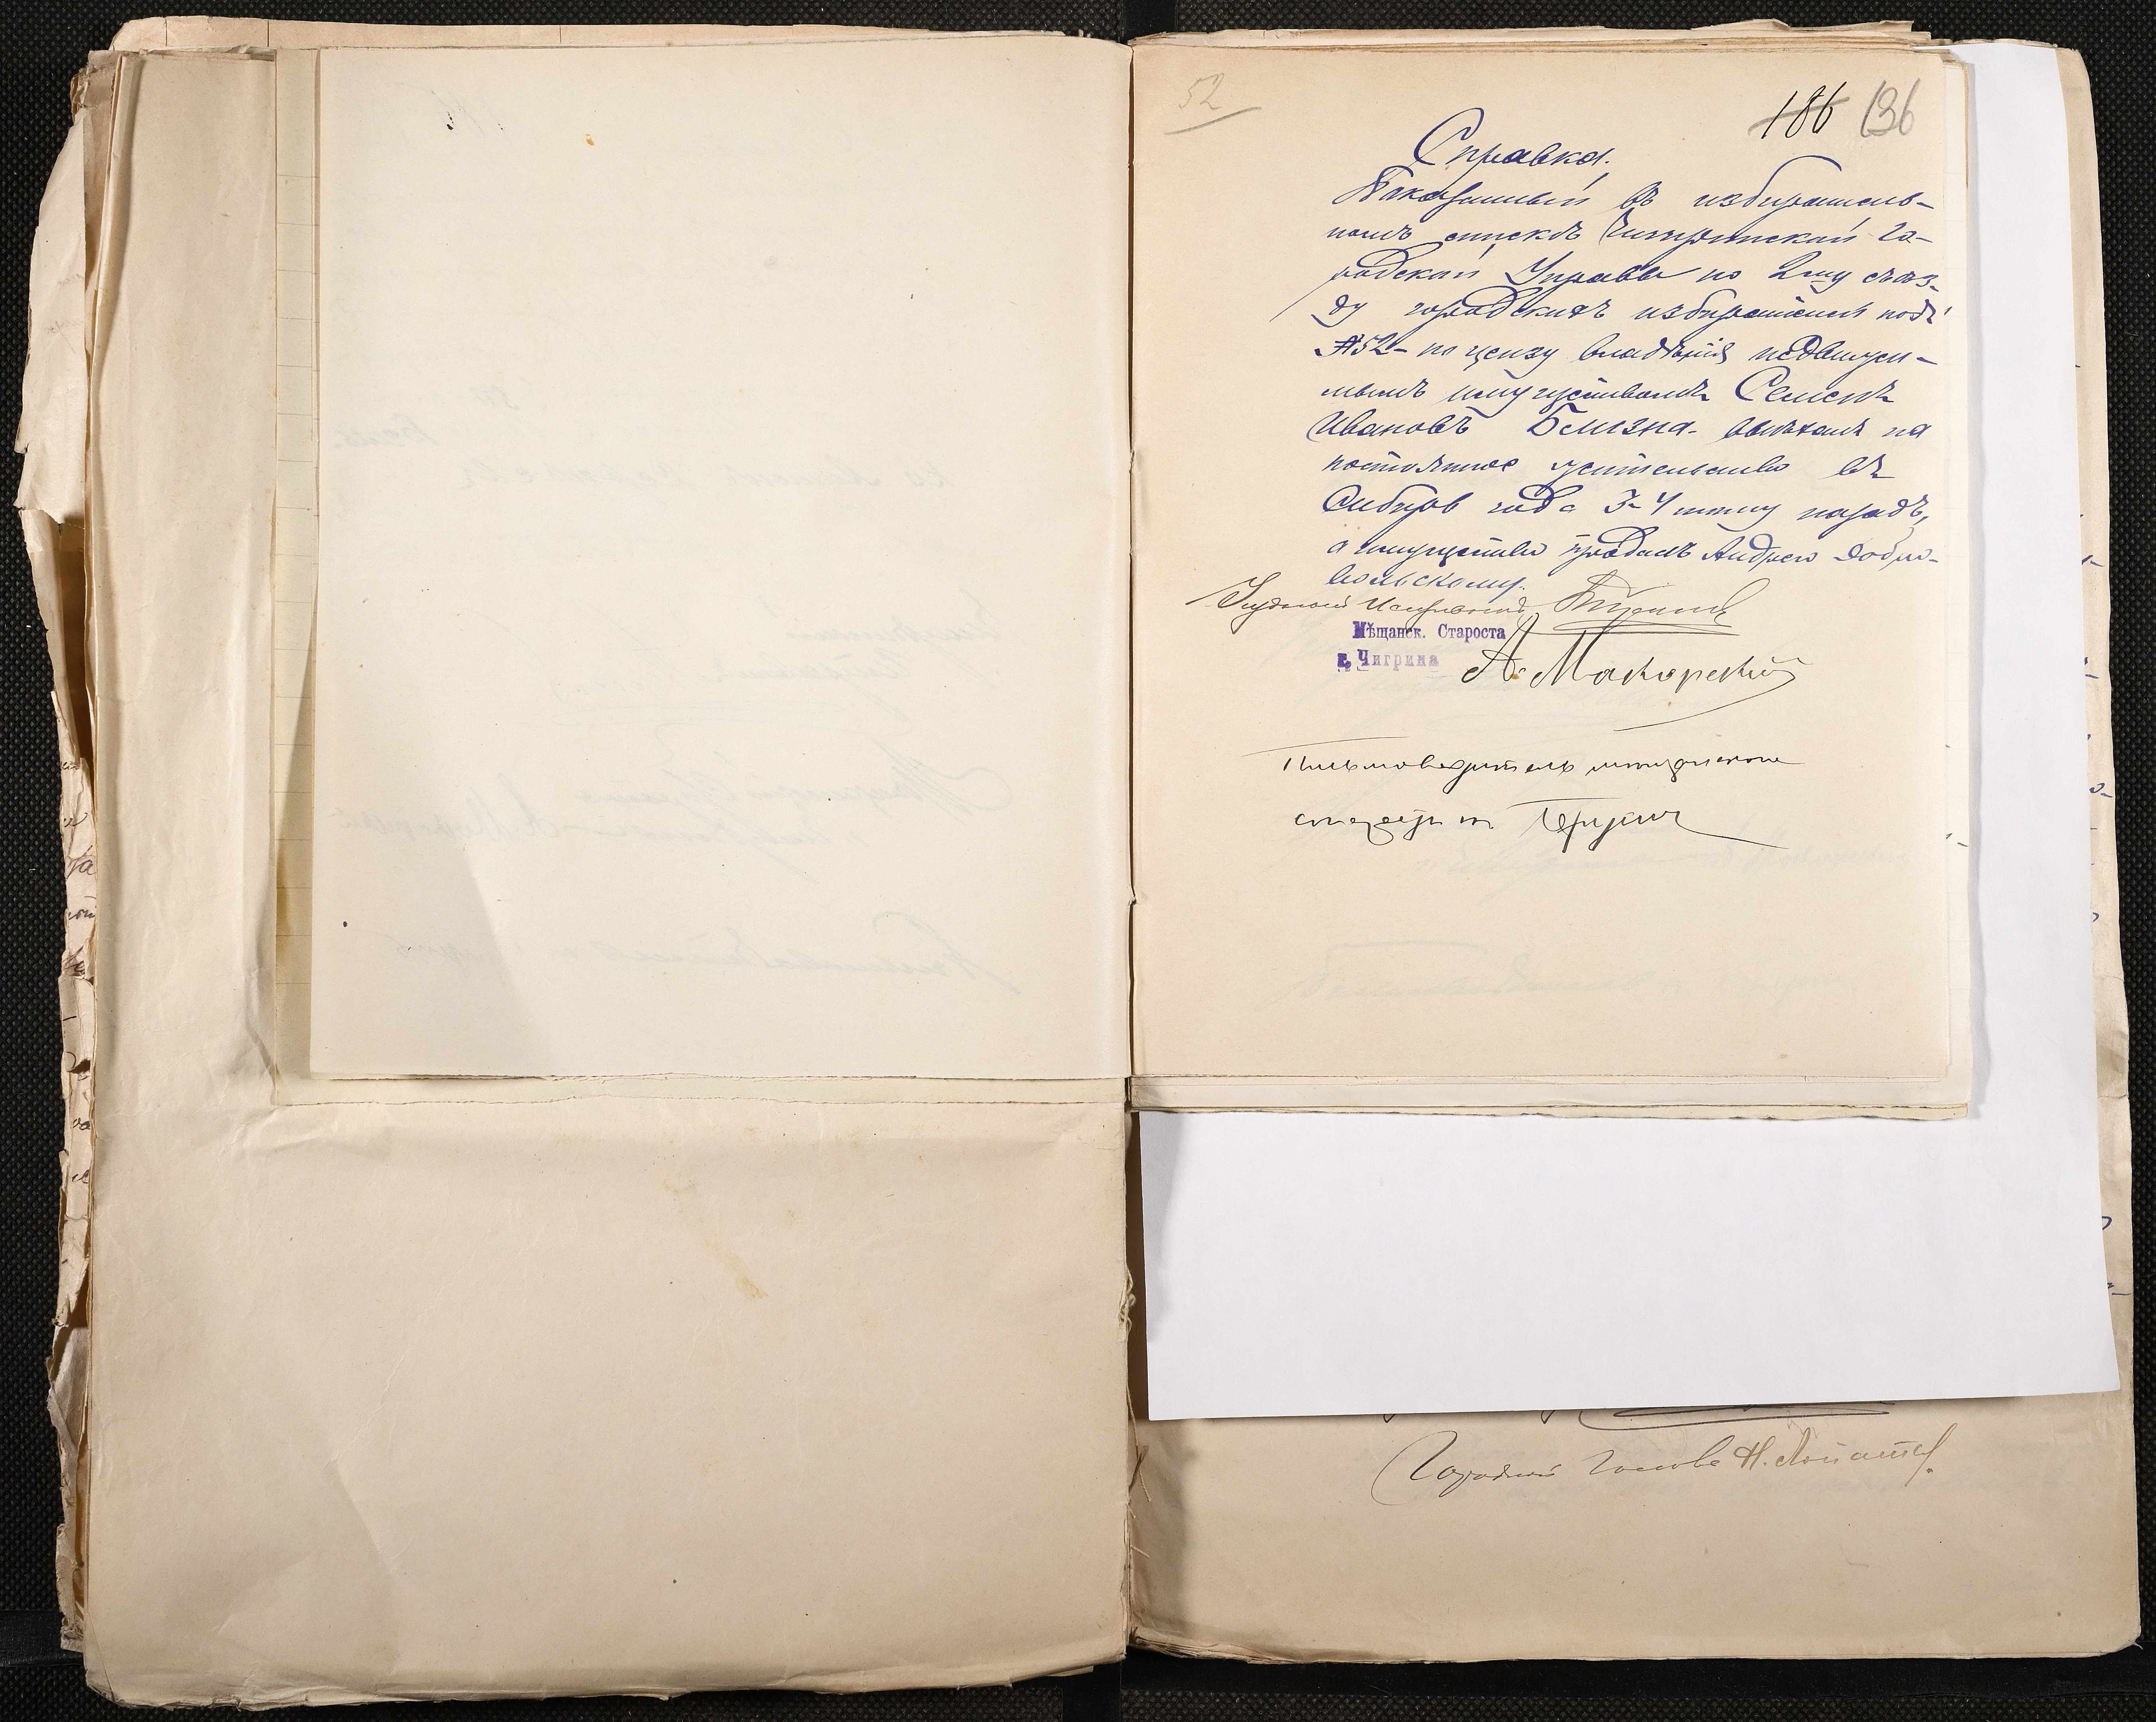 52
186 136
Справка.
Показанный въ избиратель-
номъ спискѣ Чигиринской Го-
родской Управы по 2му съѣз-
ду городскихъ избирателей подъ
№52 - по цензу владѣнія недвижи-
мымъ имуществомъ Семенъ
Ивановъ Белизна - выѣхалъ на
постоянное жительство въ
Сибирь года 3-4 тому назадъ,
а имущество продалъ Андрею Добро-
вольскому.
Уѣздный Исправникъ
Мѣщанск. Староста
г. Чигрина А. Макарскій
Письмоводитель мѣщанскаго
старосты
Городской Голова Н.